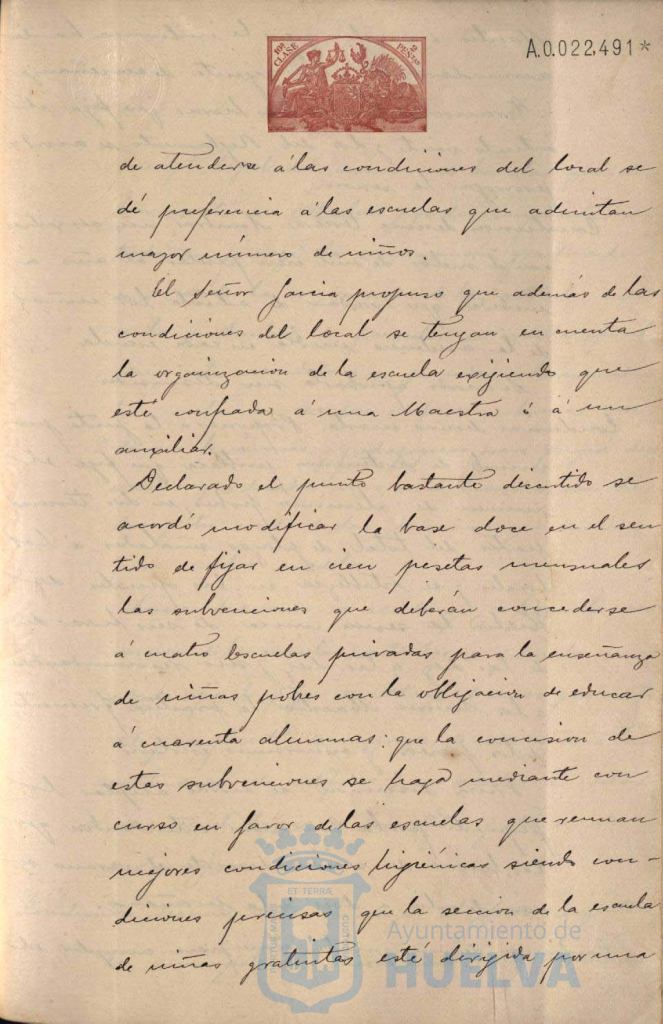 10ª CLASE 2 PESETAS
A.0.022,491*
de atenderse á las condiciones del local se
dé preferencia á las escuelas que admitan
mayor número de niños.
El Señor García propuso que además de las
condiciones del local se tengan en cuenta
la organizacion de la escuela exijiendo que
esté confiada á una Maestra ó á un
auxiliar.
Declarado el punto bastante discutido se
acordó modificar la base doce en el sen
tido de fijar en cien pesetas mensuales
las subvenciones que deberán concederse
á cuatro Escuelas privadas para la enseñanza
de niñas pobres con la obligacion de educar
á cuarenta alumnas: que la concesion de
estas subvenciones se haga mediante con
curso en favor de las escuelas que reunan
mejores condiciones higiénicas siendo con-
diciones precisas que la seccion de la escuela
de niñas gratuitas esté dirigida por una
ET TERRÆ
Ayuntamiento de
HUELVA